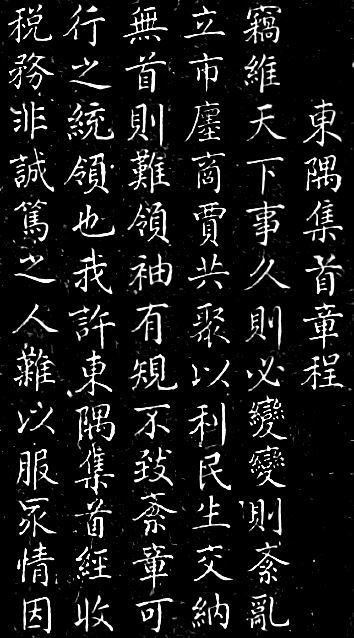 東隅集首章程
竊維天下事久則必變變則紊亂
立市廛商賈共聚以利民生交納
無首則難領袖有規不致紊章可
行之統領也我許東隅集首經收
稅務非誠篤之人難以服眾情因